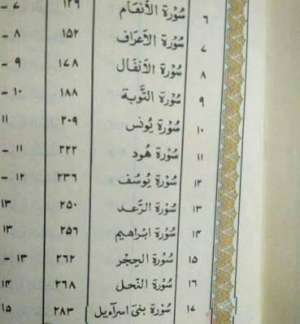 ٦ سُورَة الأنعَام ١٢٩ ٧ -
٧ سُورَة الأعرَاف ١٥٢ ٨ -
٨ سُورَة الأنفَال ١٧٨ ٩ -
٩ سُورَة التَّوبَة ١٨٨ ١٠ -
١٠ سُورَة يُونس ٢٠٩ ١١
١١ سُورَة هُود ٢٢٢ ١١ -
١٢ سُورَة يُوسُف ٢٣٦ ١٢ -
١٣ سُورَة الرَّعد ٢٥٠ ١٣
١٤ سُورَة ابراهيم ٢٥٦ ١٣
١٥ سُورَة الحِجر ٢٦٢ ١٣ -
١٦ سُورَة النَّحل ٢٦٨ ١٤
١٧ سُورَة بنی اسرآءيل ٢٨٣ ١٥